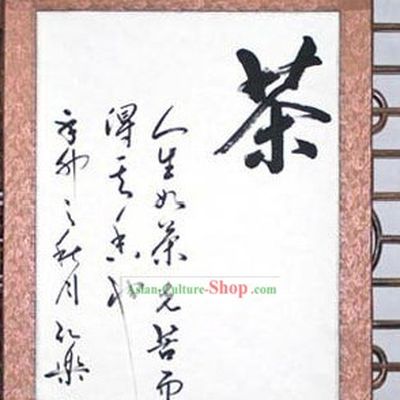 茶
人生如茶先苦而
得其香也
辛卯之秋月
Asian-Culture-Shop.com